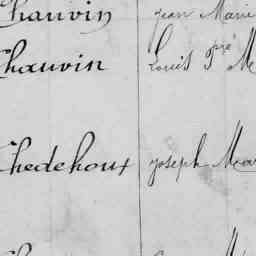 Chauvin Jean Marie
Chauvin Louis Pre M
Chedehoux Joseph Mar